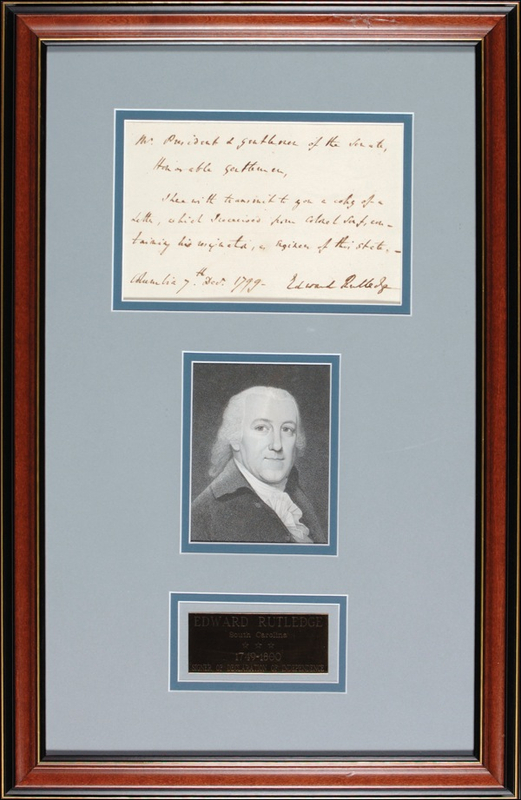 Mr. President & gentlemen of the Senate,
Honorable gentlemen,
I herewith transmit to you a copy of a
Letter, which I received from Colonel Senf, con-
taining his resignation, as Engineer of this State. –
Columbia 7th Decr. 1799– Edward Rutledge
EDWARD RUTLEDGE
South Carolina
1749-1800
SIGNER OF DECLARATION OF INDEPENDENCE